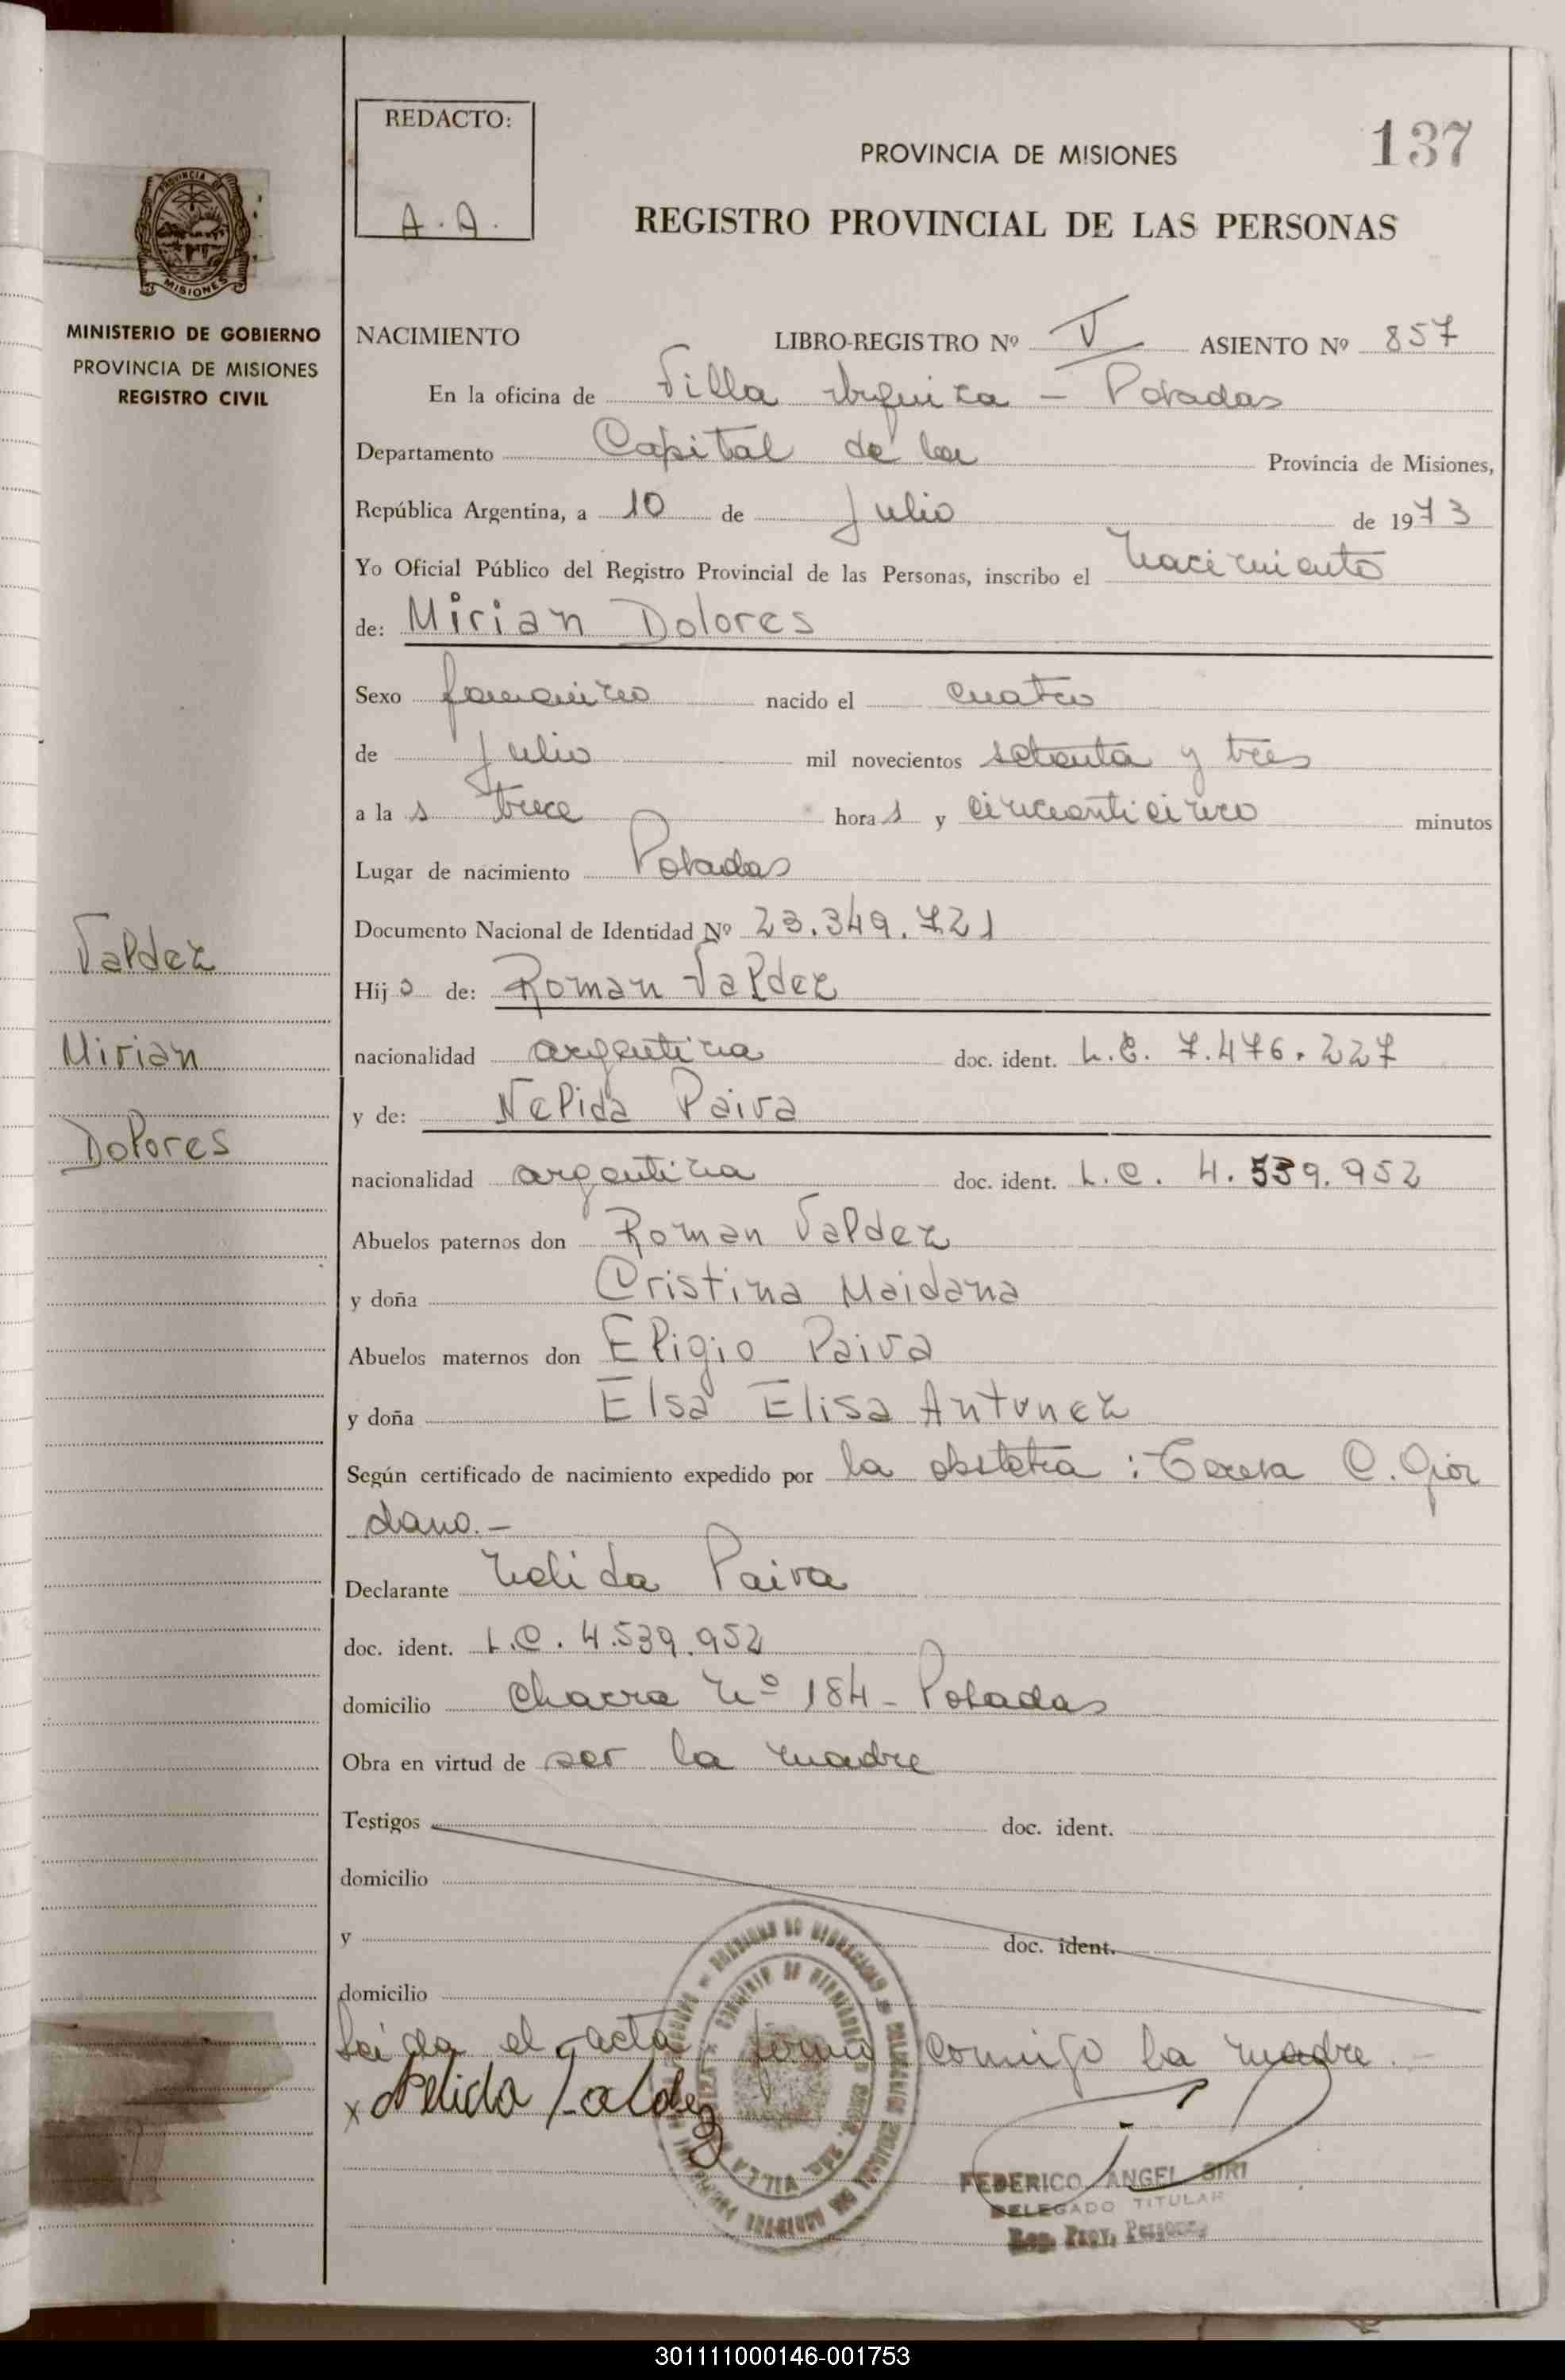 REDACTO:
A.A.
PROVINCIA DE MISIONES
137
REGISTRO PROVINCIAL DE LAS PERSONAS
PROVINCIA DE
MISIONES
MINISTERIO DE GOBIERNO
PROVINCIA DE MISIONES
REGISTRO CIVIL
NACIMIENTO LIBRO-REGISTRO Nº V ASIENTO Nº 857
En la oficina de Villa Urquiza - Posadas
Departamento Capital de la Provincia de Misiones,
República Argentina, a 10 de Julio de 1973
Yo Oficial Público del Registro Provincial de las Personas, inscribo el Nacimiento
de: Mirian Dolores
Sexo femenino nacido el cuatro
de Julio mil novecientos setenta y tres
a la s trece hora s y cincuenticinco minutos
Lugar de nacimiento Posadas
Documento Nacional de Identidad Nº 23.349.721
Valdez
Mirian
Dolores
Hij a de: Roman Valdez
nacionalidad argentina doc. ident. L.E. 7.476.227
y de: Nelida Paiva
nacionalidad argentina doc. ident. L.C. 4.539.952
Abuelos paternos don Roman Valdez
y doña Cristina Maidana
Abuelos maternos don Eligio Paiva
y doña Elsa Elisa Antunez
Según certificado de nacimiento expedido por la obstetra: Teresa C. Gior
dano.-
Declarante Nelida Paiva
doc. ident. L.C. 4.539.952
domicilio Chacra Nº 184 - Posadas
Obra en virtud de ser la madre
Testigos doc. ident.
domicilio
y doc. ident.
domicilio
Leida el acta, firma conmigo la madre.-
x Nelida Valdez
FEDERICO ANGEL SIRI
DELEGADO TITULAR
Reg. Prov. Personas
301111000146-001753